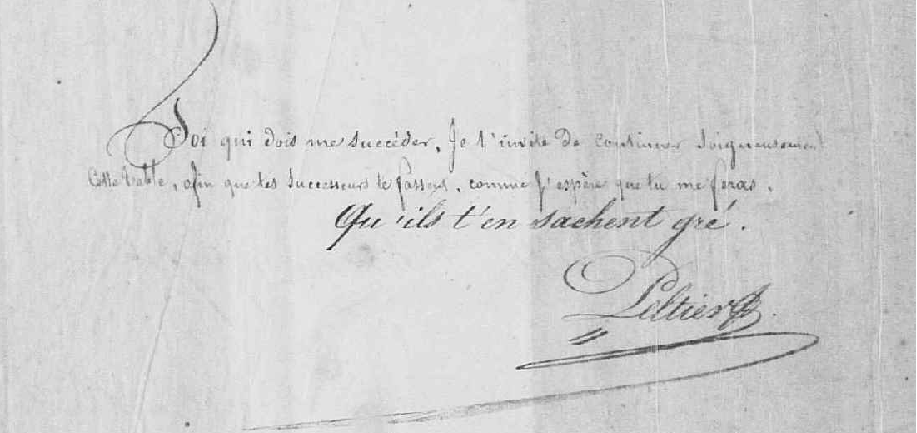 Toi qui dois me succéder, Je t'invite de continuer soigneusement
Cette table, afin que tes successeurs te fassent, comme j'espère que tu me feras.
Qu'ils t'en sachent gré.
Peltier